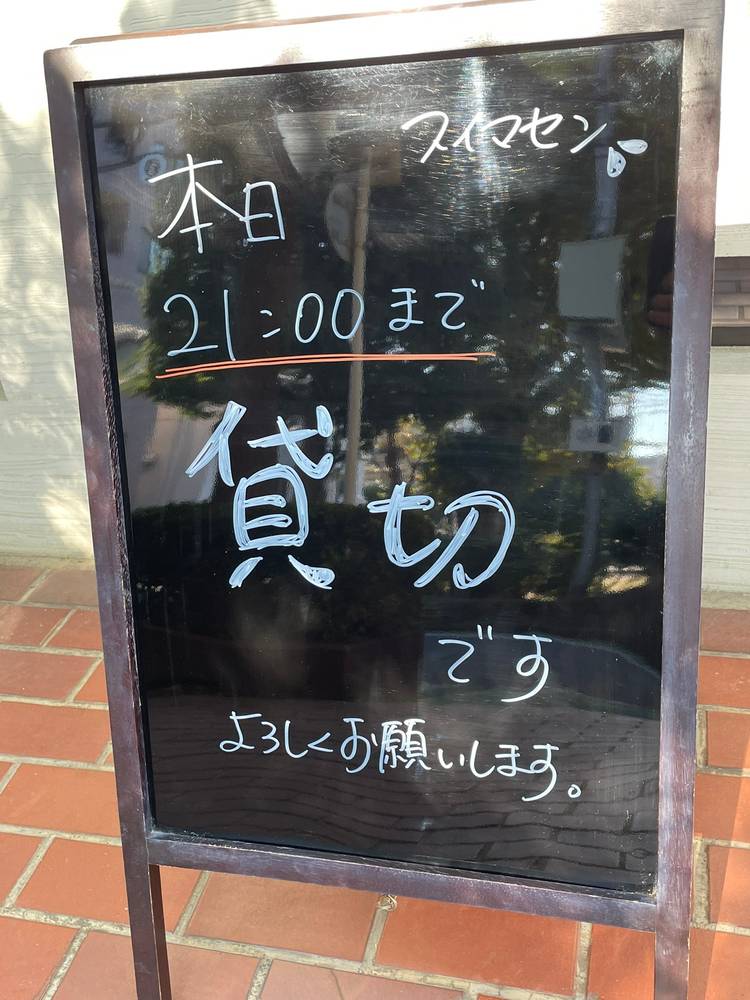 スイマセン
本日
21:00まで
貸切
です
よろしくお願いします。